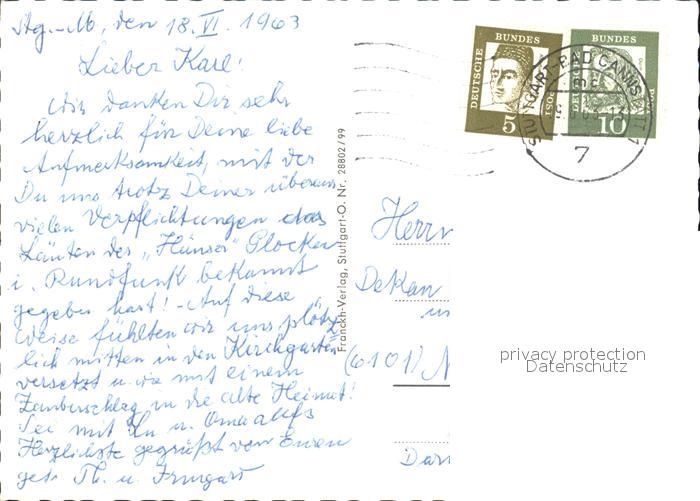 Stg.-M, den 18. VI. 1963
Lieber Karl!
Wir danken Dir sehr
herzlich für Deine liebe
Aufmerksamkeit, mit der
Du uns trotz Deiner überaus
vielen Verpflichtungen das
Läuten der „ Glocken
i. Rundfunk bekannt
gegeben hast! - Auf diese
Weise fühlten wir uns plötz-
lich mitten in den Kirchgarten
versetzt u. wie mit einem
Zauberschlag in die alte Heimat!
Sei mit u. Oma aufs
Herzlichste gegrüßt von Euren
getr. Th. u. Irmgard
Franckh-Verlag, Stuttgart-O. Nr. 28802/99
DEUTSCHE BUNDESPOST
5
DEUTSCHE BUNDESPOST
10
STUTTGART-BAD CANNSTATT 1
7
Herrn
Dekan
(6101) N
Dar
privacy protection
Datenschutz